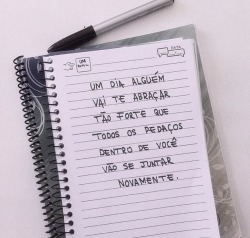 UM DIA ALGUÉM
VAI TE ABRAÇAR
TÃO FORTE QUE
TODOS OS PEDAÇOS
DENTRO DE VOCÊ
VÃO SE JUNTAR
NOVAMENTE.